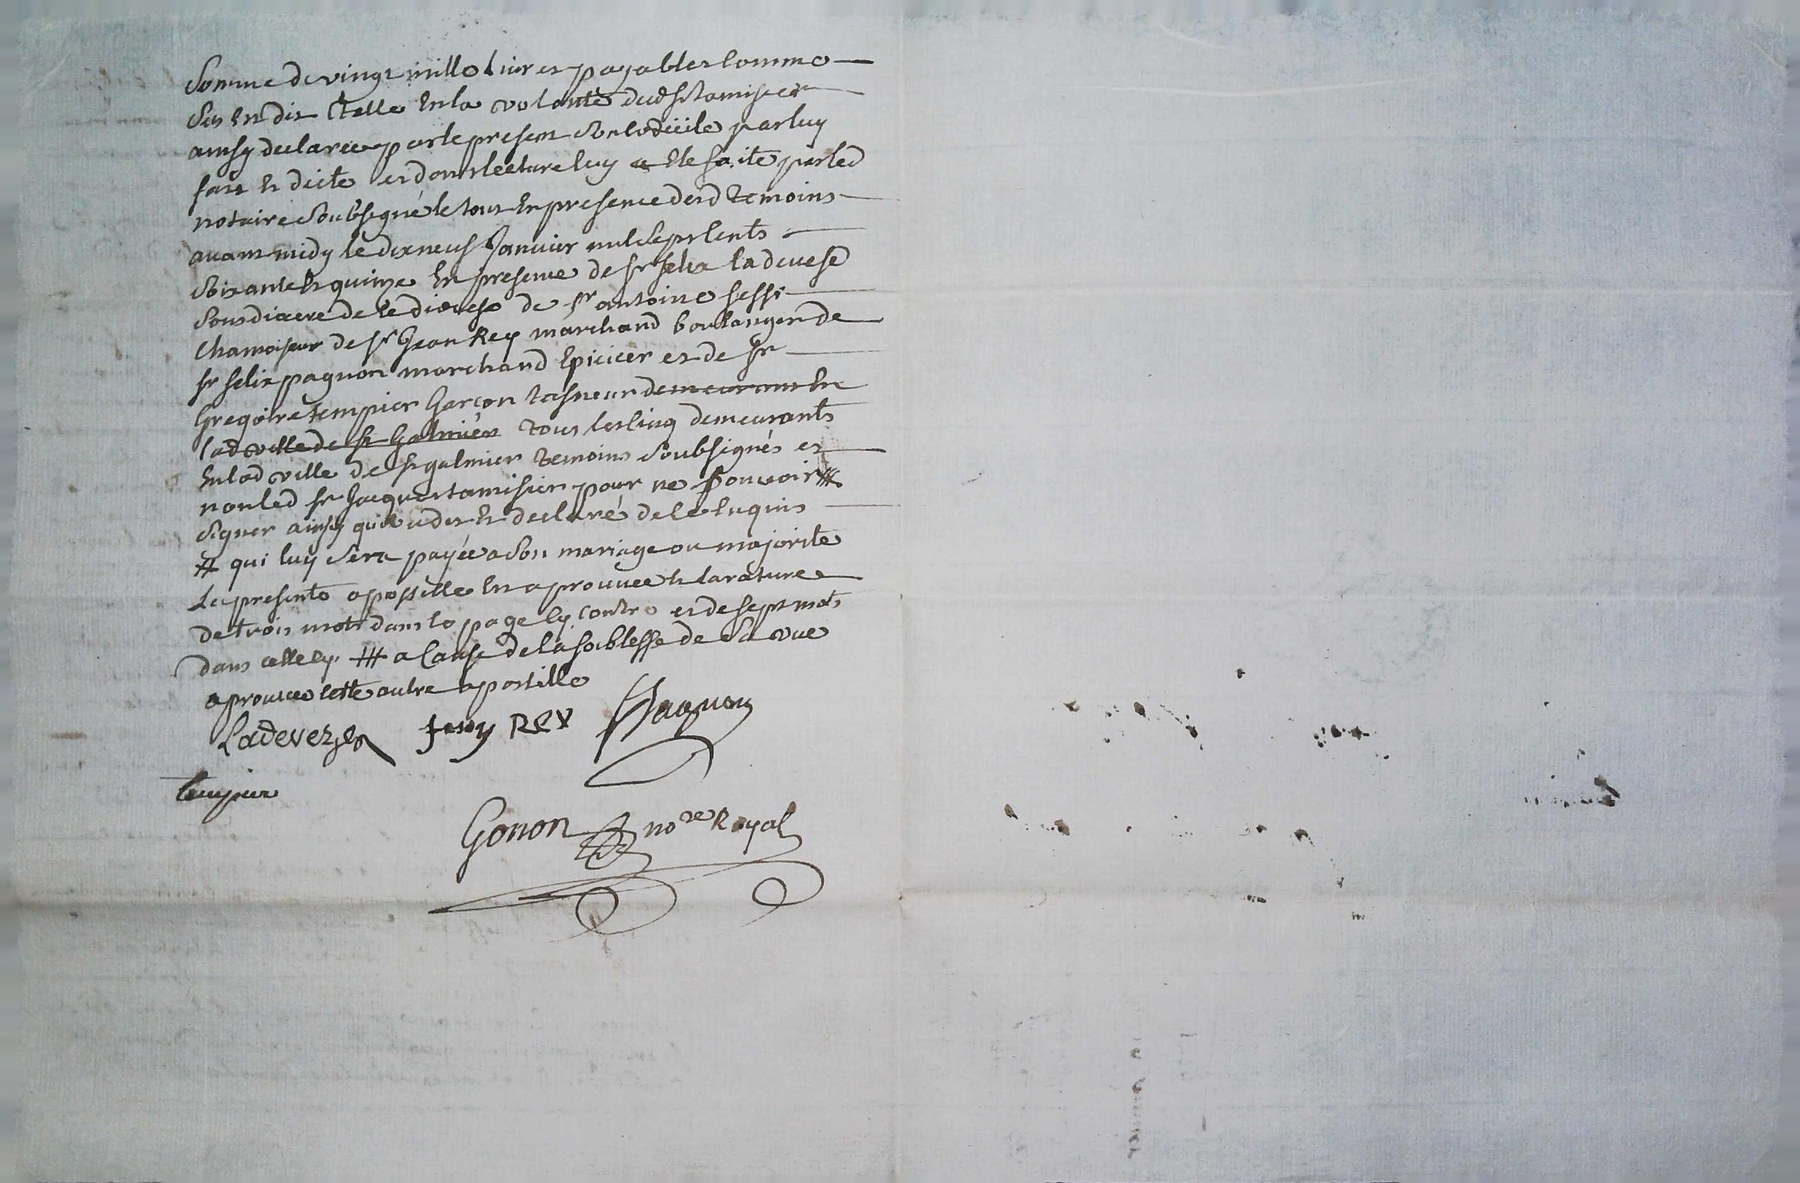 Somme de vingt mille livres payables comme
sus est dit telle est la volonté dud sr tamisier
ainsy declarée par le present son codicile par luy
fait et dicté et dont lecture luy a ete faite par led
notaire soubsigné le tout en presence desd temoins
avant midy le dix neuf Janvier mil sept cents
soixante et quinze en presence de sr felix ladevese
sousdiacre de ce diocese de sr antoine sessi
chamoiseur de sr Jean Rey marchand boulanger de
sr felix pagnon marchand Epicier et de sr
Gregoire tempier Garçon tasneur demeurant en
lad ville de st Galmier tous les cinq demeurants
en lad ville de st galmier temoins soubsignés et
non led sr Jacques tamisier pour ne pouvoir ###
signer ainsy qu'il a dit et declaré de ce enquis
# qui luy sera payée a son mariage ou majorité
la presente apostille est aprouvée et la rature
de trois mots dans la page cy contre et de sept mots
dans celle cy. ### a cause de la foiblesse de sa vue
aprouvée cette autre apostille
Ladeveze Jean REY Pagnon
tempier
Gonon nore Royal